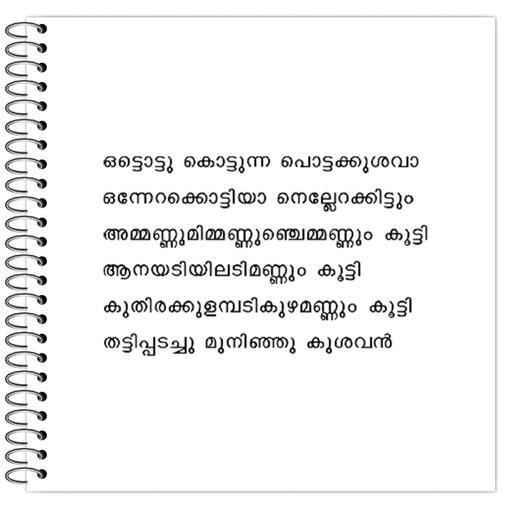 ഒട്ടൊട്ടു കൊട്ടുന്ന പൊട്ടക്കുശവാ
ഒന്നേറക്കൊട്ടിയാ നെല്ലേറക്കിട്ടും
അമ്മണ്ണുമിമ്മണ്ണുഞ്ചെമ്മണ്ണും കൂട്ടി
ആനയടിയിലടിമണ്ണും കൂട്ടി
കുതിരക്കുളമ്പടികുഴമണ്ണും കൂട്ടി
തട്ടിപ്പടച്ചു മുനിഞ്ഞു കുശവൻ